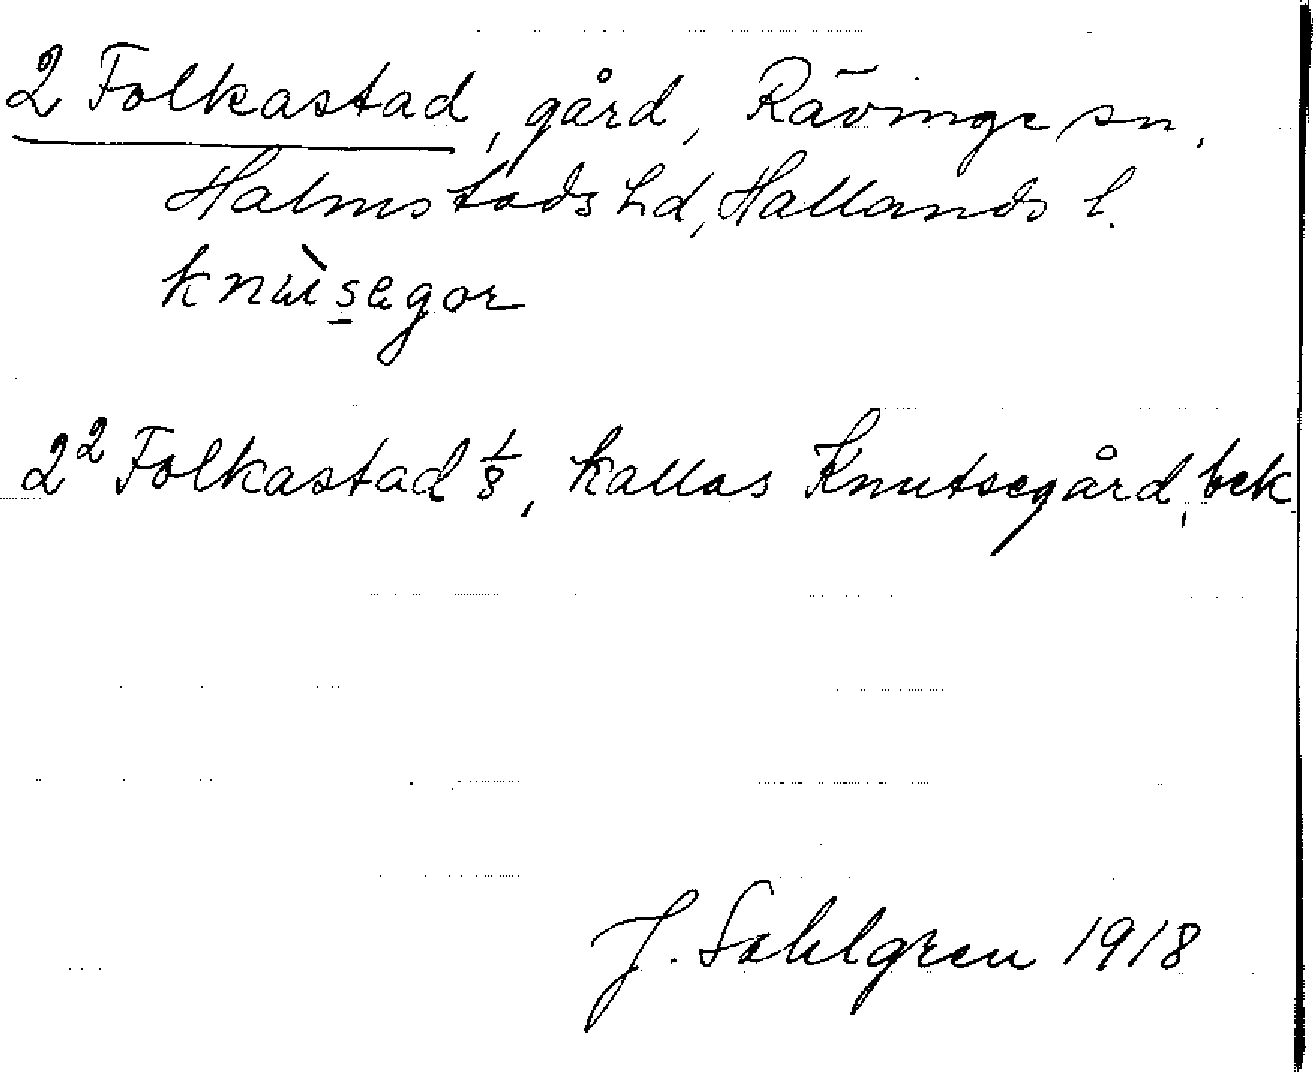 2 Folkastad, gård, Rävinge sn,
Halmstads hd, Hallands l.
knùsegor
2² Folkastad 1/8, kallas Knutsegård, bek
J. Sahlgren 1918